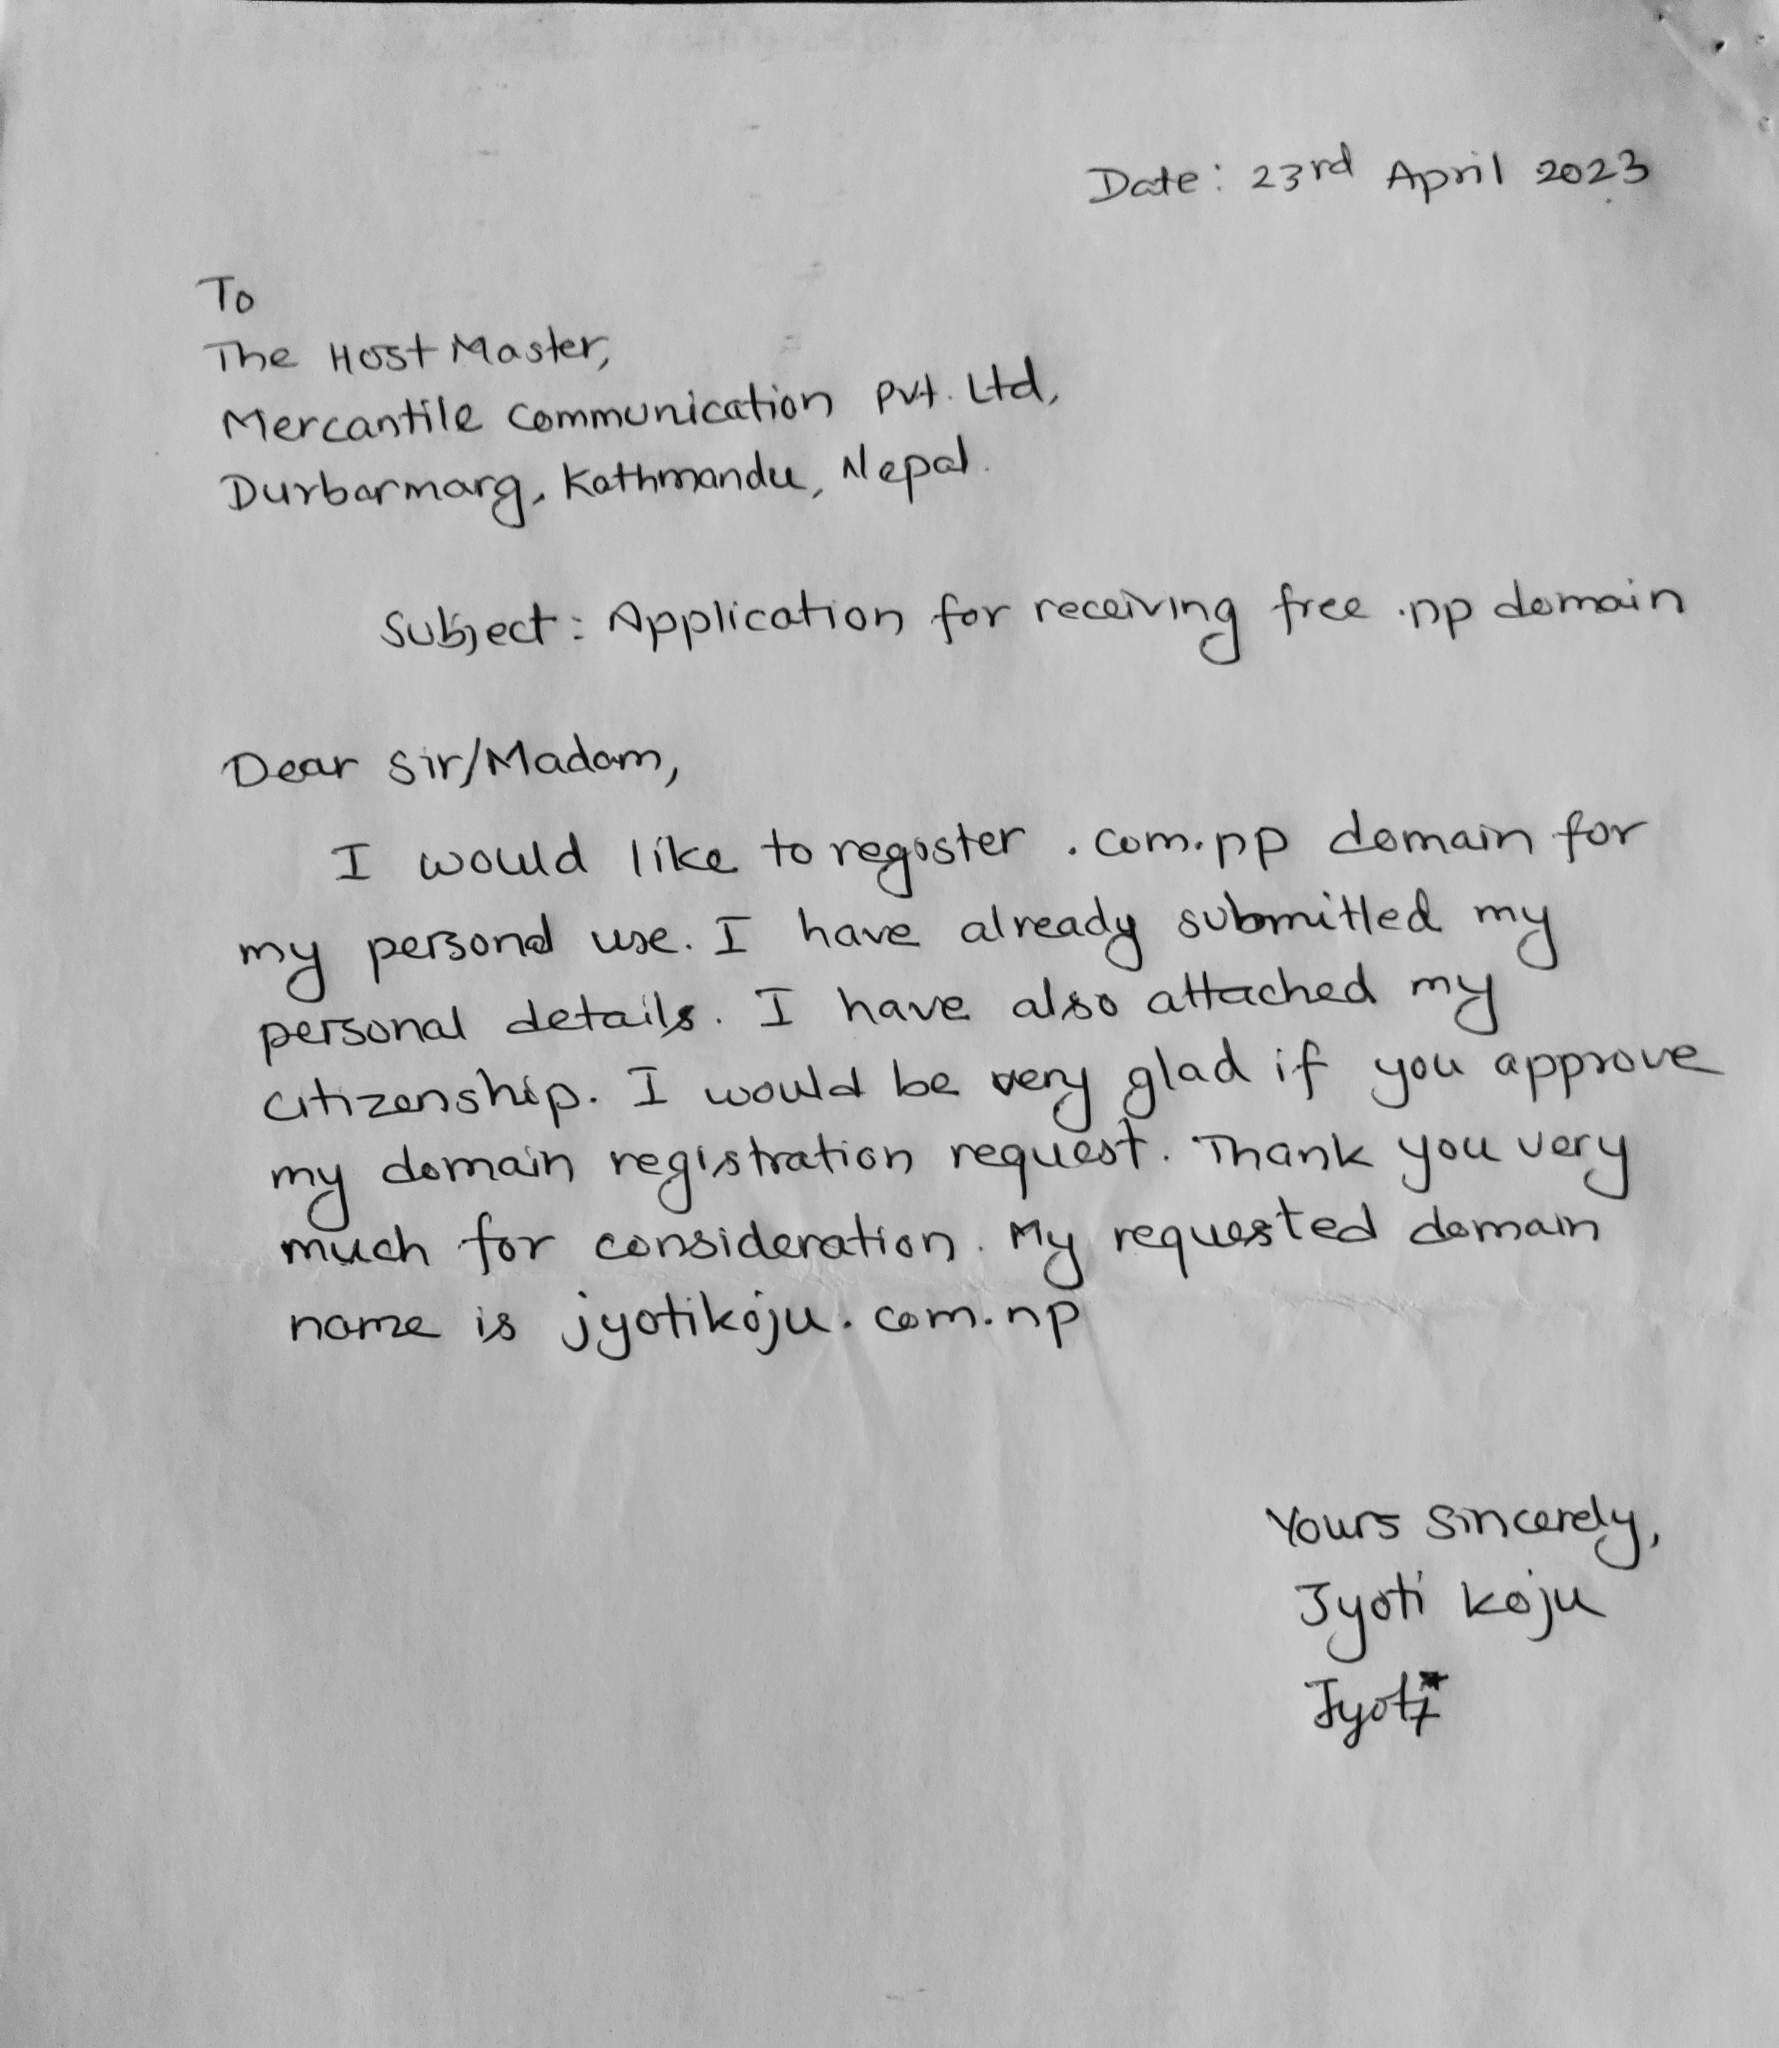 Date: 23rd April 2023
To
The Host Master,
Mercantile Communication Pvt. Ltd,
Durbarmarg, Kathmandu, Nepal.
Subject: Application for receiving free .np domain
Dear Sir/Madam,
I would like to register .com.np domain for
my personal use. I have already submitted my
personal details. I have also attached my
citizenship. I would be very glad if you approve
my domain registration request. Thank you very
much for consideration. My requested domain
name is jyotikoju.com.np
Yours Sincerely,
Jyoti Koju
Jyoti